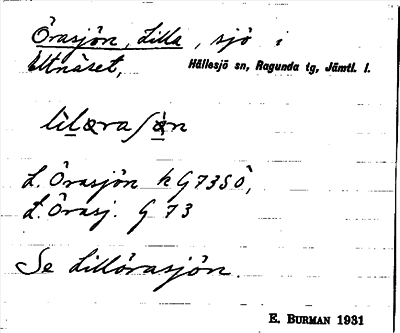 Örasjön, Lilla, sjö i
Ultnäset, Hällesjö sn, Ragunda tg, Jämtl. l.
L. Örasjön k G73SÖ,
L. Örasj. G 73
Se Lillörasjön.
E. BURMAN 1931